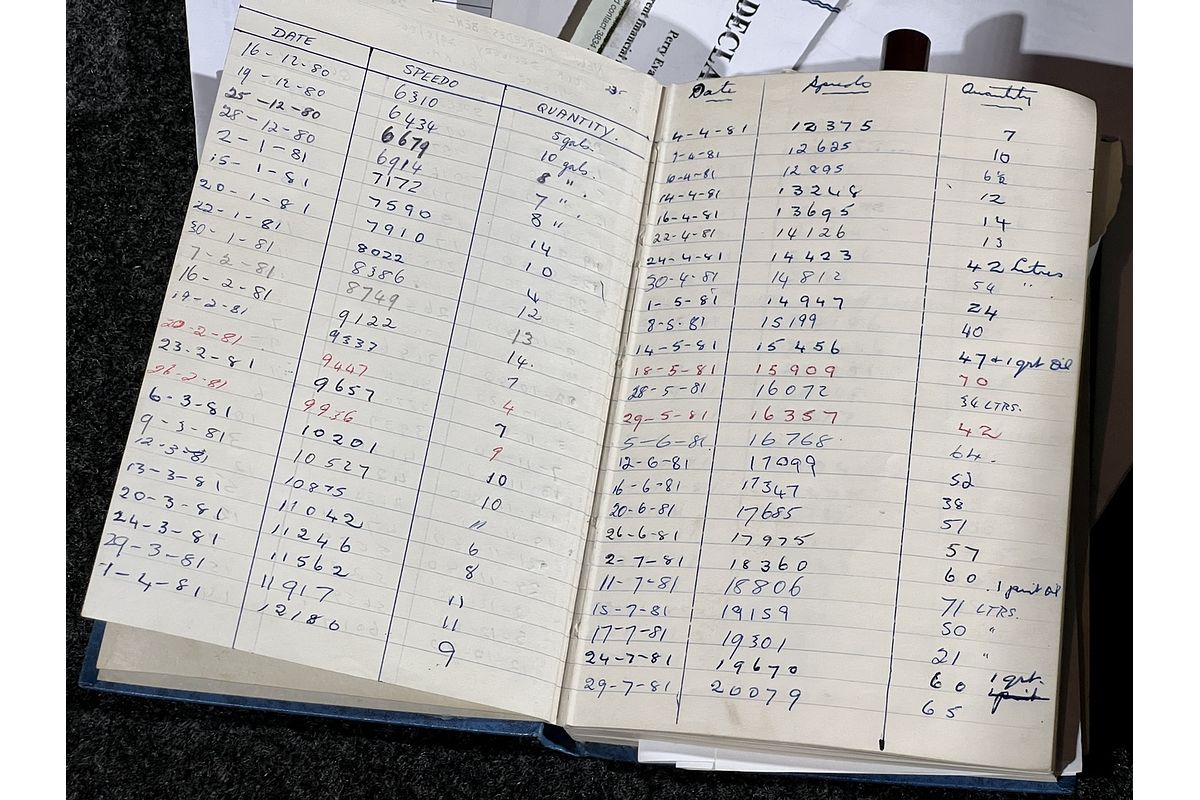 DECLA
Perry Eva
rent financial
DATE SPEEDO QUANTITY.
16-12-80 6310 5 gals.
19-12-80 6434 10 gals.
25-12-80 6679 8 "
28-12-80 6914 7 "
2-1-81 7172 8 "
15-1-81 7590 14
20-1-81 7910 10
22-1-81 8022 4
30-1-81 8386 12
7-2-81 8749 13
16-2-81 9122 14.
19-2-81 9337 7
20-2-81 9447 4
23-2-81 9657 7
26-2-81 9936 9
6-3-81 10201 10
9-3-81 10527 10
12-3-81 10875 11
13-3-81 11042 6
20-3-81 11246 8
24-3-81 11562 11
29-3-81 11917 11
1-4-81 12186 9
Date Speedo Quantity
4-4-81 12375 7
7-4-81 12625 10
10-4-81 12895 6½
14-4-81 13248 12
16-4-81 13695 14
22-4-81 14126 13
24-4-81 14423 42 Litres
30-4-81 14812 54 "
1-5-81 14947 24
8-5-81 15199 40
14-5-81 15456 47 + 1 qrt Oil
18-5-81 15909 70
28-5-81 16072 34 LTRS.
29-5-81 16357 42
5-6-81 16768 64.
12-6-81 17099 52
16-6-81 17347 38
20-6-81 17685 51
26-6-81 17975 57
2-7-81 18360 60 1 pint oil
11-7-81 18806 71 LTRS.
15-7-81 19159 50 "
17-7-81 19301 21 "
24-7-81 19670 60 1 qrt. pint
29-7-81 20079 65